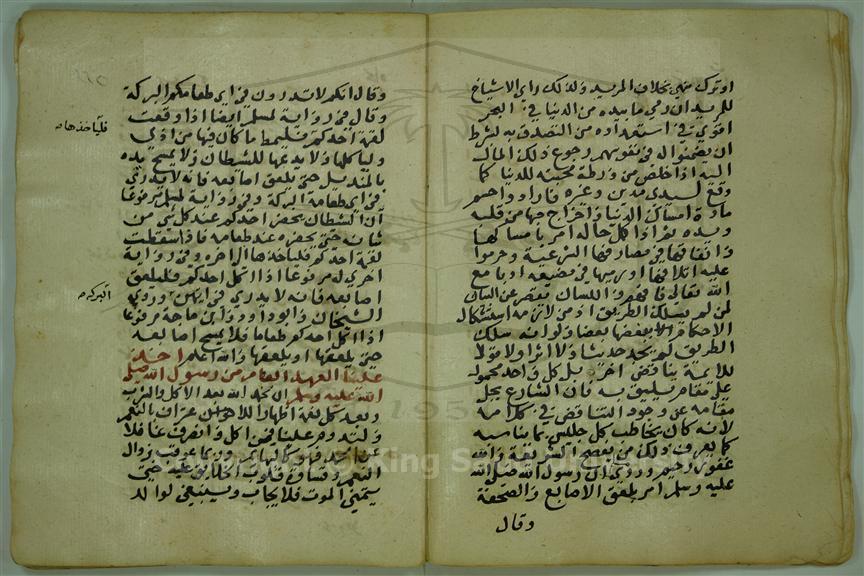 او ترك نهي بخلاف المريد ولذلك راي الاشياخ
للمريد ان رمي ما بيده من الدنيا في البحر
اقوي في استعداده من التصدق به لشرط
ان يضمنوا له في نفوسهم رجوع ذلك المال
اليه اذا خلص من ورطة محبته للدنيا كما
وقع لسيدي مدين وغيره فارادوا حسم
مادة امساك الدنيا واخراج حبها من قلبه
ويده ثم اذا كمل حاله امر بامساكها
وانفاقها في مصارفها الشرعية وحرموا
عليه اتلافها او رميها في مضيعة ادبا مع
الله تعالي فافهم فان اللسان يقصر عن البيان
لمن لم يسلك الطريق اذ من لازمه استشكال
الاحكام ببعضها بعضا ولو انه سلك
الطريق لم يجد حديثا ولا اثرا ولا قولا
للائمة يناقض اخر بل كل واحد محمول
علي مقام يليق به فان الشارع يجل
مقامه عن وجود التناقض في كلامه
لانه كان يخاطب كل جليس بما يناسبه
كما يعرف ذلك من تصفح الشريعة والله
غفور رحيم وروي ان رسول الله صلي الله
عليه وسلم امر بلعق الاصابع والصحفة
وقال
وقال انكم لا تدرون في اي طعامكم البركة
وقال في رواية لمسلم ايضا اذا وقعت
لقمة احدكم فليمط ما كان فيها من اذي
فلياخذها
ولياكلها ولا يدعها للشطان ولا يمسح يده
بالمنديل حتي يلعق اصابعه فانه لا يدري
في اي طعامه البركة وفي رواية لمسلم مرفوعا
ان الشطان يحضر احدكم عند كل شي من
شانه حتي يحضره عند طعامه فاذا سقطت
لقمة احدكم فلياخذها الي اخره وفي رواية
اخري له مرفوعا اذا اكل احدكم فليلعق
اصابعه فانه لا يدري في ايتهن وروي
البركه
الشيخان وابو داوود وابن ماجة مرفوعا
اذا اكل احدكم طعاما فلا يمسح اصابعه
حتي يلعقها او يلعقها والله اعلم اخذ
علينا العهد العام من رسول الله صلي
الله عليه وسلم ان نحمد الله بعد الاكل والشرب
وبعد كل لقمة اظهارا للاعتراف بالنعم
ولتدوم علينا فمن اكل وانصرف غافلا
عن الحمد فهو كالبهايم وربما عوقب بزوال
النعم وقساوة قلوب الخلايق عليه حتي
يتمني الموت فلا يجاب وينبغي لوالد